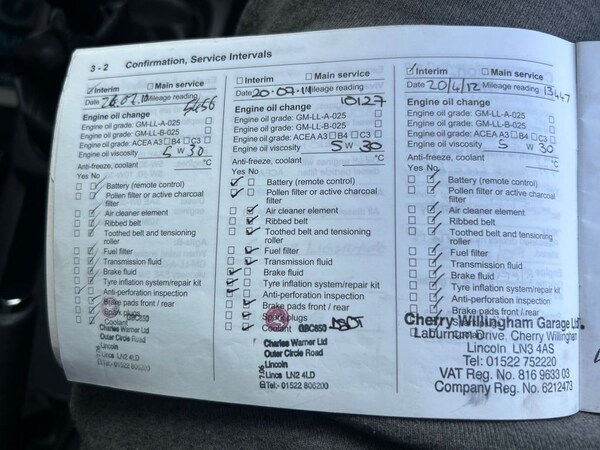 3 - 2 Confirmation, Service Intervals
☑ Interim ☐ Main service
Date Mileage reading
5456
Engine oil change
Engine oil grade: GM-LL-A-025 ☐
Engine oil grade: GM-LL-B-025 ☐
Engine oil grade: ACEA A3 ☐ B4 ☐ C3 ☐
Engine oil viscosity 5 W 30
Anti-freeze, coolant °C
Yes No
Battery (remote control)
Pollen filter or active charcoal
filter
Air cleaner element
Ribbed belt
Toothed belt and tensioning
roller
Fuel filter
Transmission fluid
Brake fluid
Tyre inflation system/repair kit
Anti-perforation inspection
Brake pads front / rear
Spark plugs
Coolant GBC850
Charles Warner Ltd
Outer Circle Road
Lincoln
Lincs LN2 4LD
Tel:- 01522
☐ Interim ☐ Main service
Date 20-07-11 Mileage reading
10127
Engine oil change
Engine oil grade: GM-LL-A-025 ☐
Engine oil grade: GM-LL-B-025 ☐
Engine oil grade: ACEA A3 ☐ B4 ☐ C3 ☐
Engine oil viscosity 5 W 30
Anti-freeze, coolant °C
Yes No
Battery (remote control)
Pollen filter or active charcoal
filter
Air cleaner element
Ribbed belt
Toothed belt and tensioning
roller
Fuel filter
Transmission fluid
Brake fluid
Tyre inflation system/repair kit
Anti-perforation inspection
Brake pads front / rear
Spark plugs
Coolant GBC850
Charles Warner Ltd
Outer Circle Road
Lincoln
Lincs LN2 4LD
Tel:- 01522
☑ Interim ☐ Main service
Date 20/4/12 Mileage reading 13447
Engine oil change
Engine oil grade: GM-LL-A-025 ☐
Engine oil grade: GM-LL-B-025 ☐
Engine oil grade: ACEA A3 ☐ B4 ☐ C3 ☐
Engine oil viscosity 5 W 30
Anti-freeze, coolant °C
Yes No
Battery (remote control)
Pollen filter or active charcoal
filter
Air cleaner element
Ribbed belt
Toothed belt and tensioning
roller
Fuel filter
Transmission fluid
Brake fluid
Tyre inflation system/repair kit
Anti-perforation inspection
Brake pads front / rear
Cherry Willingham Garage Ltd.
Laburnum Drive, Cherry Willingham
Lincoln LN3 4AS
Tel: 01522 752220
VAT Reg. No. 816 9633 03
Company Reg. No. 6212473